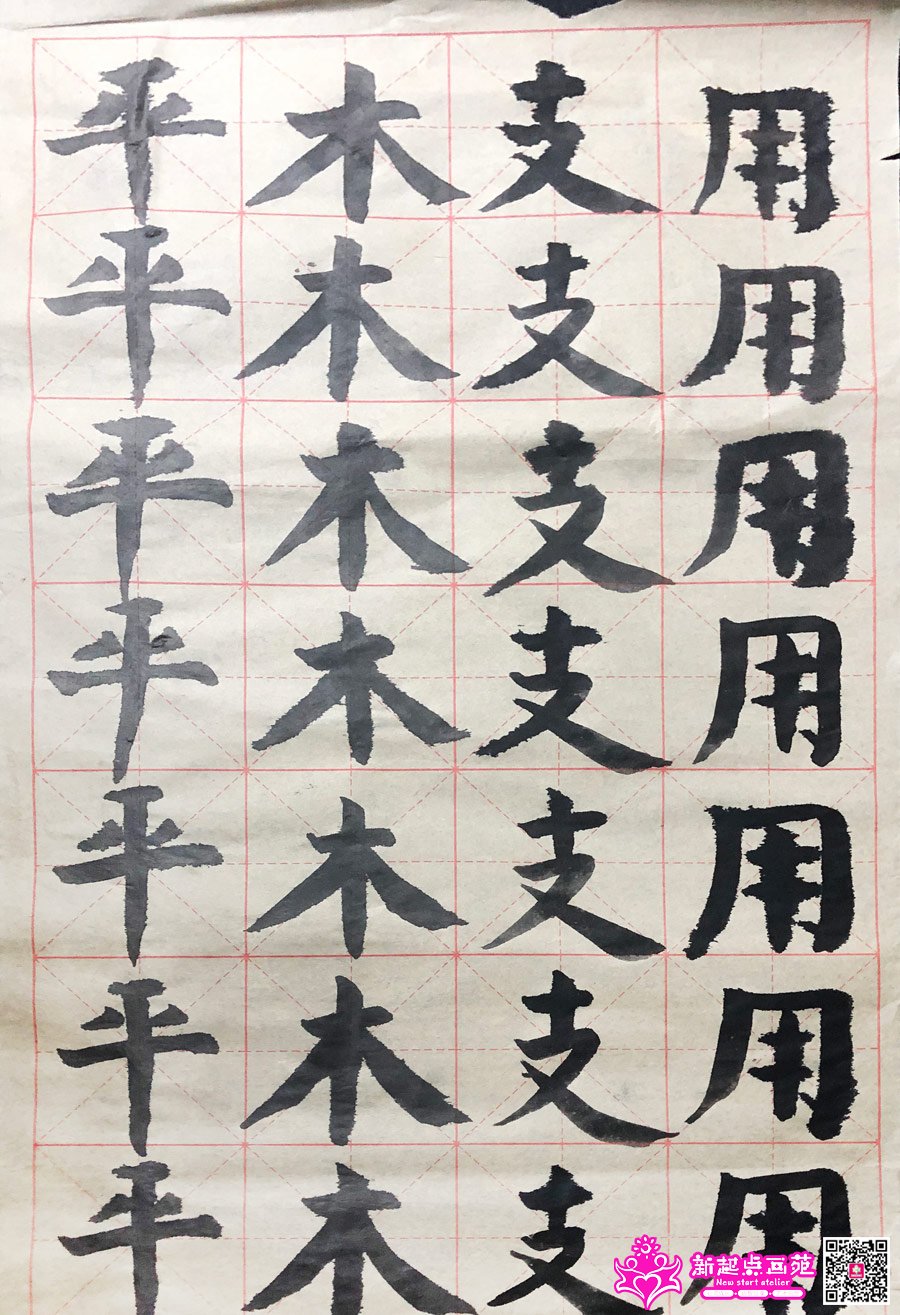 平 木 支 用
平 木 支 用
平 木 支 用
平 木 支 用
平 木 支 用
平 木 支 用
平 木 支 用
新起点画苑
New start atelier